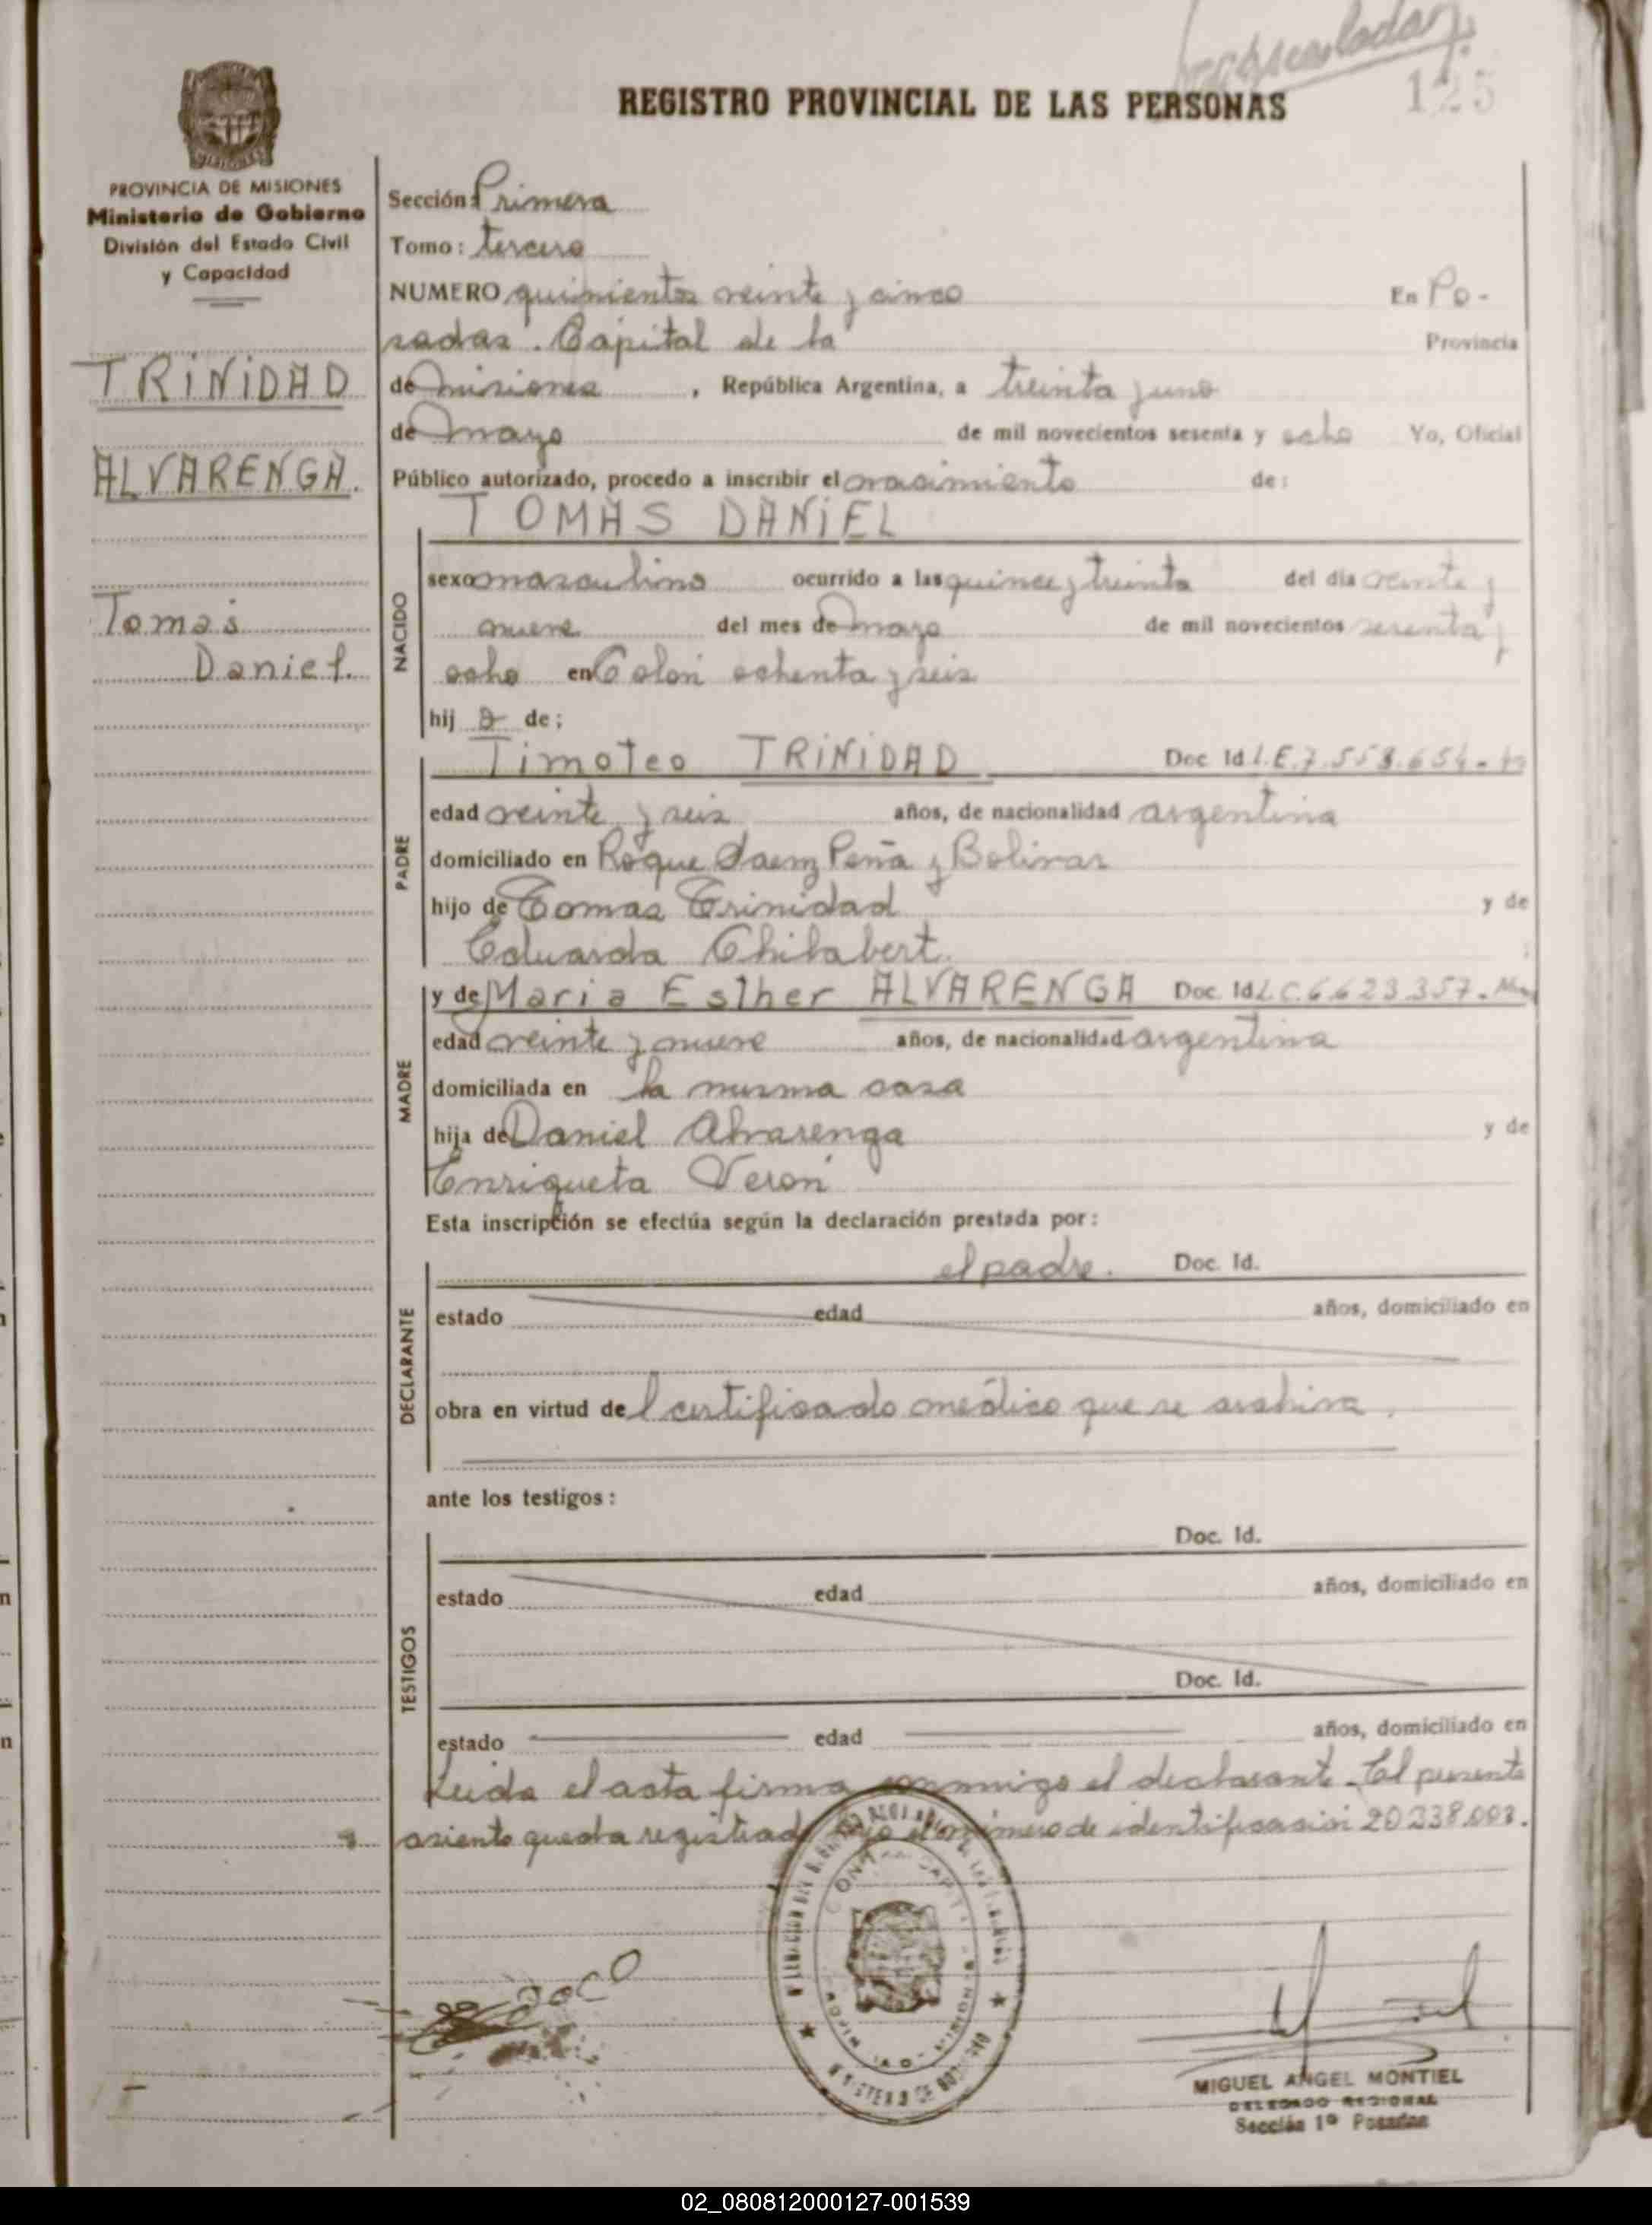 125
REGISTRO PROVINCIAL DE LAS PERSONAS
PROVINCIA DE MISIONES
Ministerio de Gobierno
División del Estado Civil
y Capacidad
TRINIDAD
ALVARENGA.
Tomás
Daniel.
Sección: Primera
Tomo: tercero
NUMERO quinientos veinte y cinco En Po-
sadas. Capital de la Provincia
de Misiones, República Argentina, a treinta y uno
de Mayo de mil novecientos sesenta y ocho Yo, Oficial
Público autorizado, procedo a inscribir el nacimiento de:
TOMAS DANIEL
NACIDO
sexo masculino ocurrido a las quince y treinta del día veinte y
nueve del mes de Mayo de mil novecientos sesenta y
ocho en Colón ochenta y seis
hij o de;
Timoteo TRINIDAD Doc Id L.E.7.558.654.-
PADRE
edad veinte y seis años, de nacionalidad argentina
domiciliado en Roque Saenz Peña y Bolivar
hijo de Tomas Trinidad y de
Eduarda Chilabert.
y de Maria Esther ALVARENGA Doc. Id L.C.6.623.357.-
MADRE
edad veinte y nueve años, de nacionalidad argentina
domiciliada en la misma casa
hija de Daniel Alvarenga y de
Enriqueta Verón
Esta inscripción se efectúa según la declaración prestada por:
el padre. Doc. Id.
DECLARANTE
estado edad años, domiciliado en
obra en virtud del certificado médico que se archiva.
ante los testigos:
Doc. Id.
TESTIGOS
estado edad años, domiciliado en
Doc. Id.
estado edad años, domiciliado en
Leida el acta firma conmigo el declarante. El presente
asiento queda registrado bajo el número de identificación 20.338.003.
MIGUEL ANGEL MONTIEL
DELEGADO REGIONAL
Sección 1º Posadas
02_080812000127-001539